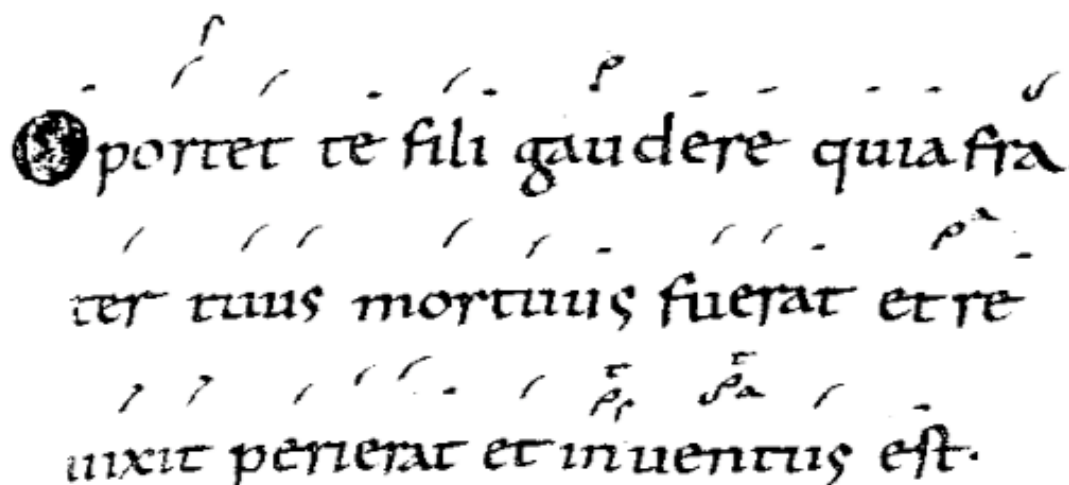 Oportet te fili gaudere quia fra
ter tuus mortuus fuerat et re
uixit perierat et inuentus est.